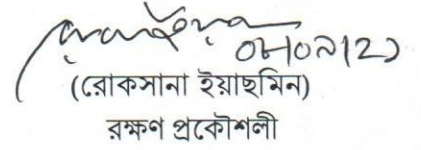 ০৮/০৯/২১
(রোকসানা ইয়াছমিন)
রক্ষণ প্রকৌশলী